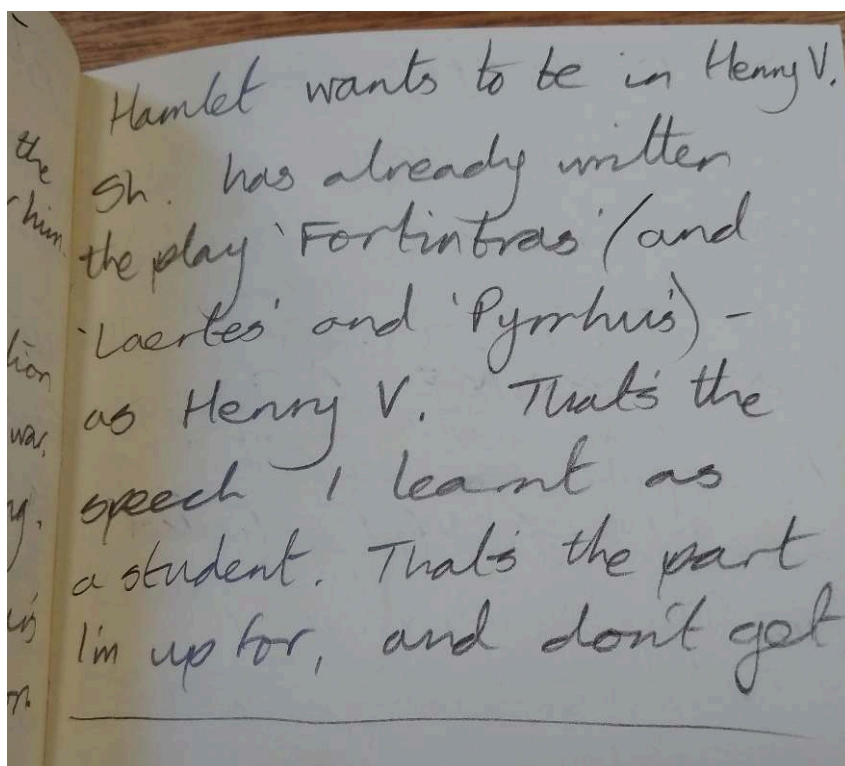 the
him.
tion
war.
Hamlet wants to be in Henry V.
Sh. has already written
the play 'Fortinbras' (and
'Laertes' and 'Pyrrhus') -
as Henry V. That's the
speech I learnt as
a student. That's the part
I'm up for, and don't get